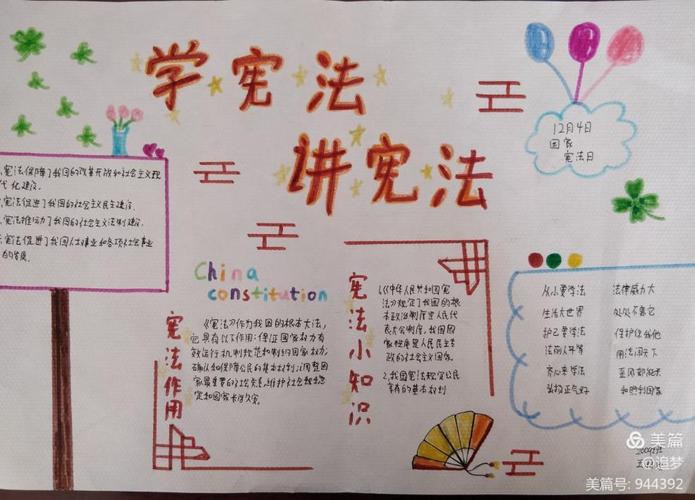 学宪法
讲宪法
12月4日
国家
宪法日
宪法保障了我国的改革开放和社会主义现
代化建设.
宪法促进了我国的社会主义民主建设.
宪法推动了我国的社会主义法制建设.
宪法促进了我国人权事业和各项社会事业
的发展.
China
constitution
宪法作用
《宪法》作为我国的根本大法,
它具有以下作用:保证国家权力有
效运行,机制规范和制约国家权力,
确认和保障公民的基本权利,调整国
家最重要的社会关系,维护社会稳定
定和国家长治久安.
宪法小知识
1.《中华人民共和国宪
法》规定了我国的根
本政治制度是人民代
表大会制度,我国国
家性质是人民民主专
政的社会主义国家.
2.我国宪法规定公民
享有的基本权利
从小要学法 法律威力大
生活大世界 处处不离它
护己要学法 保护你我他
法前人平等 用法闯天下
齐心来学法
弘扬正气好 和胜利国家
美篇
@追梦
美篇号: 944392